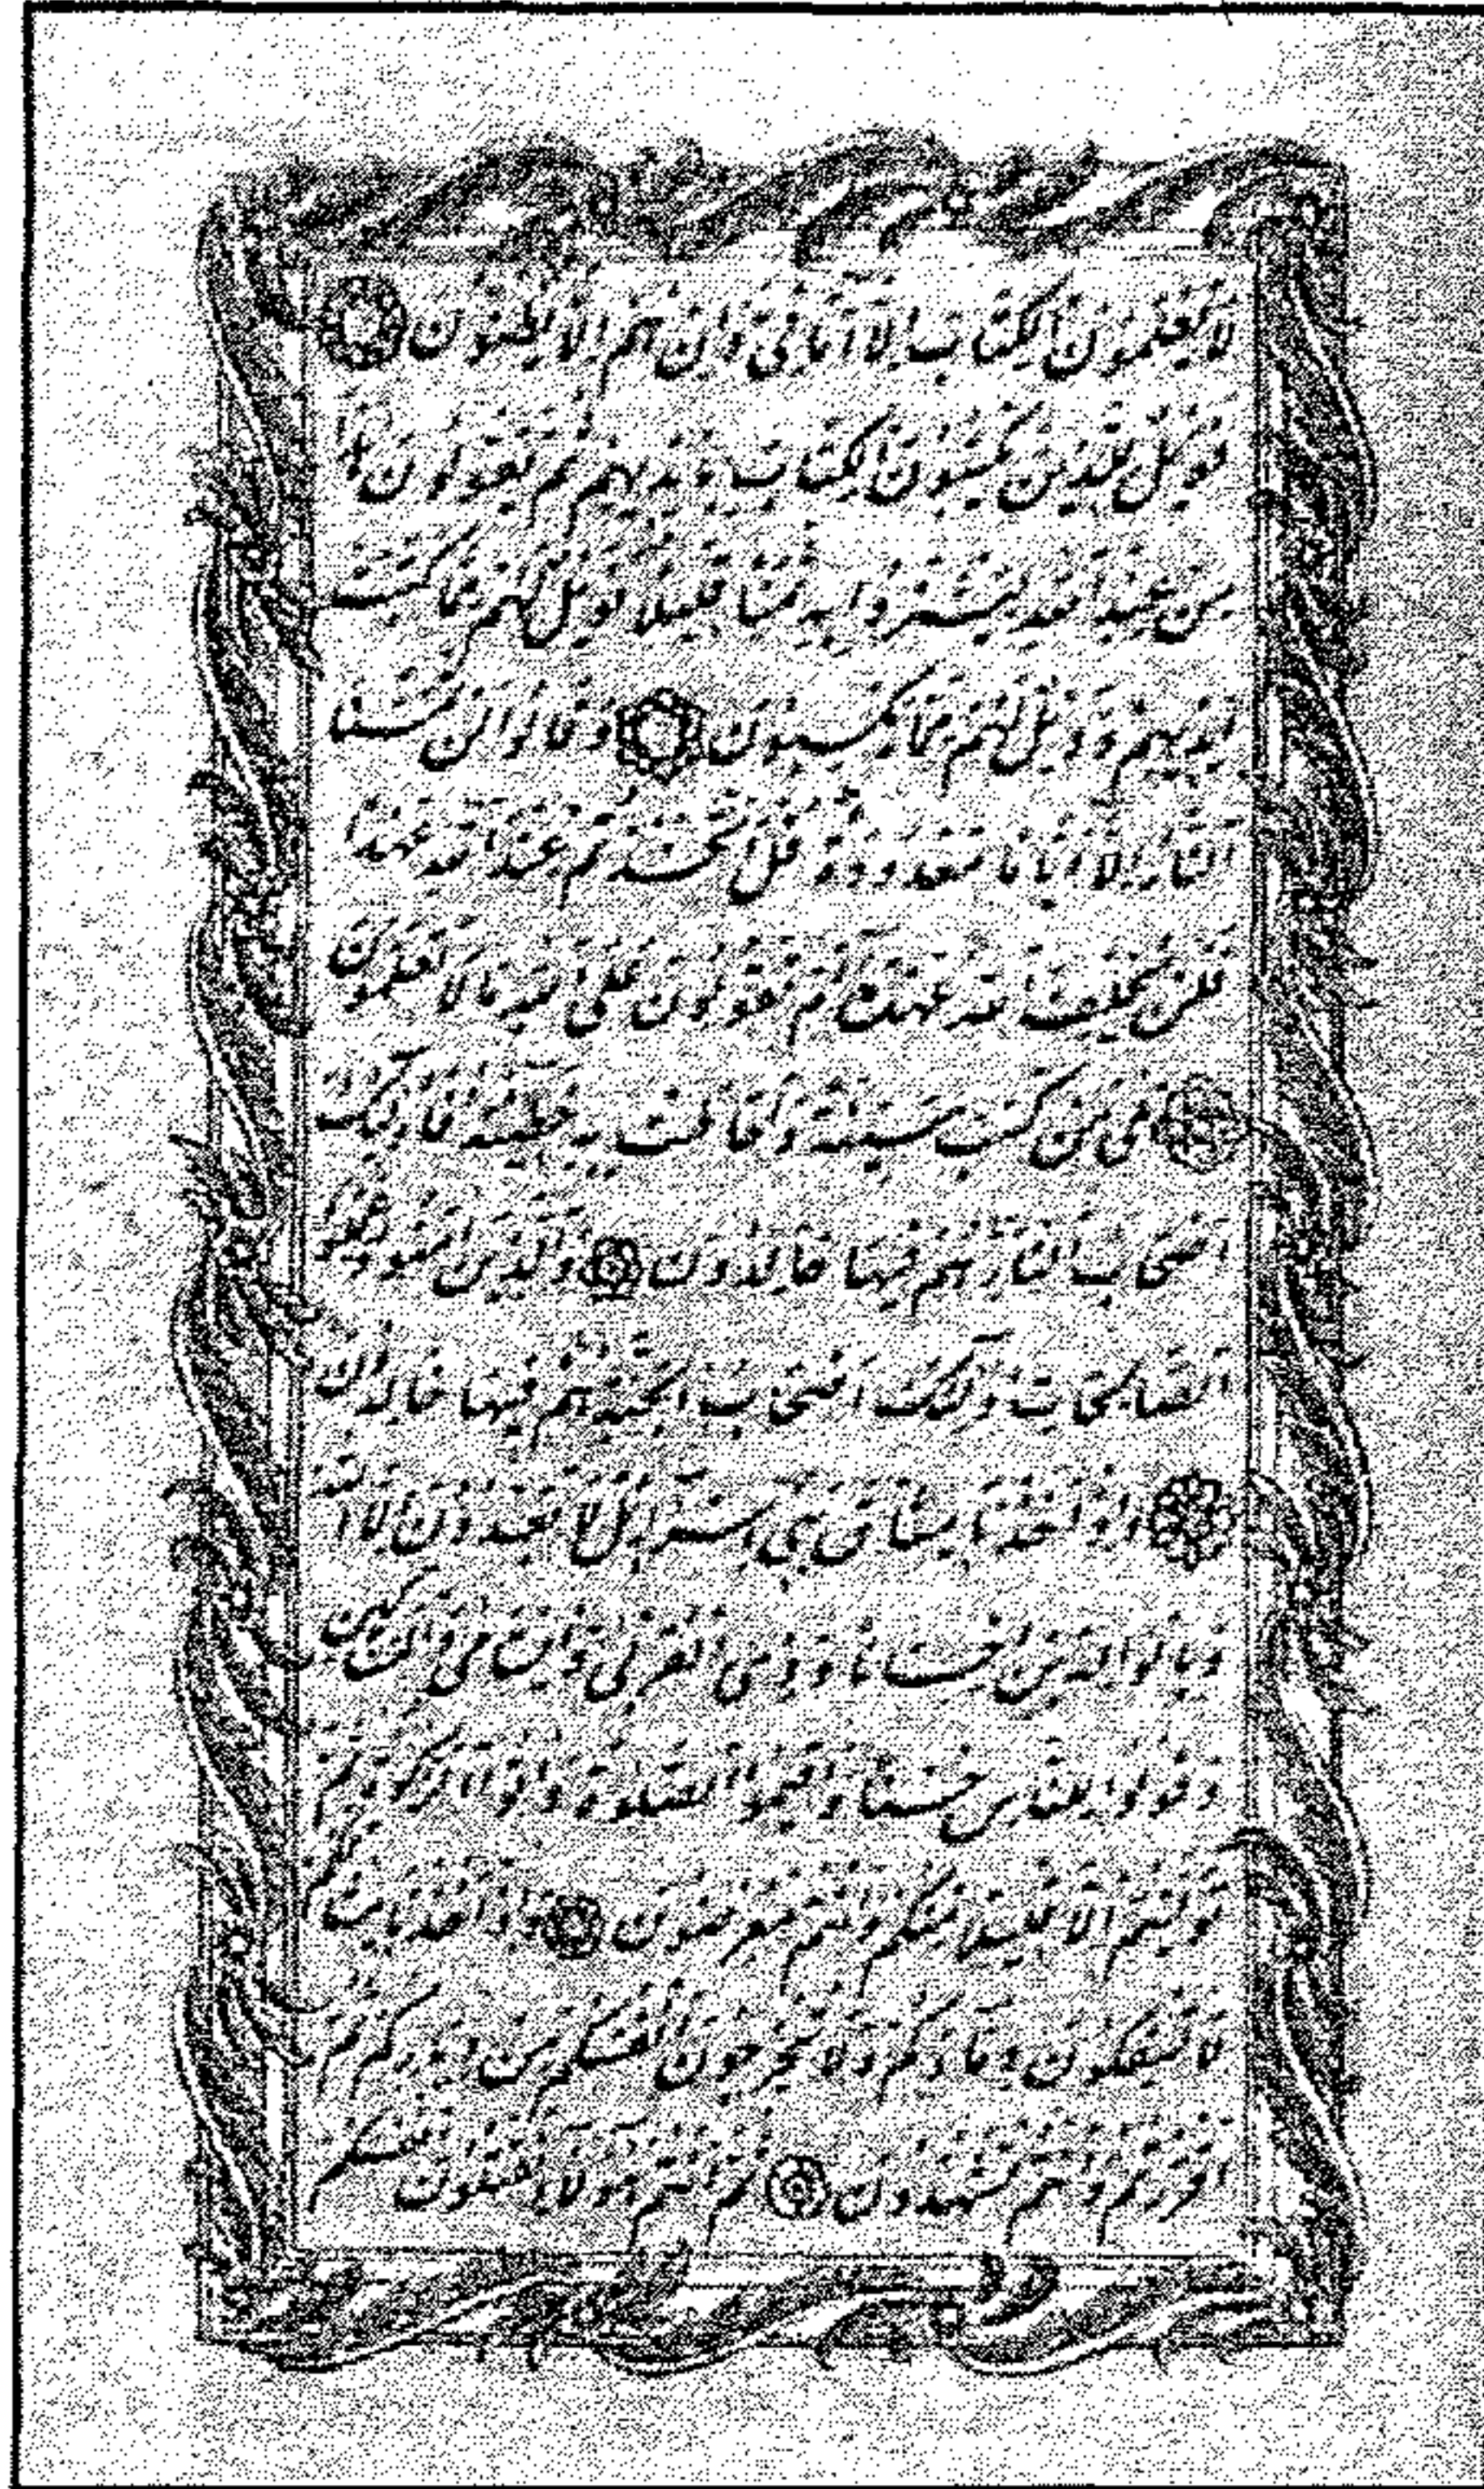 لَا يَعْلَمُونَ الْكِتَابَ إِلَّا أَمَانِيَّ وَإِنْ هُمْ إِلَّا يَظُنُّونَ
فَوَيْلٌ لِلَّذِينَ يَكْتُبُونَ الْكِتَابَ بِأَيْدِيهِمْ ثُمَّ يَقُولُونَ هٰذَا
مِنْ عِنْدِ اللّٰهِ لِيَشْتَرُوا بِهِ ثَمَنًا قَلِيلًا فَوَيْلٌ لَهُمْ مِمَّا كَتَبَتْ
أَيْدِيهِمْ وَوَيْلٌ لَهُمْ مِمَّا يَكْسِبُونَ وَقَالُوا لَنْ تَمَسَّنَا
النَّارُ إِلَّا أَيَّامًا مَعْدُودَةً قُلْ أَتَّخَذْتُمْ عِنْدَ اللّٰهِ عَهْدًا
فَلَنْ يُخْلِفَ اللّٰهُ عَهْدَهُ أَمْ تَقُولُونَ عَلَى اللّٰهِ مَا لَا تَعْلَمُونَ
بَلَى مَنْ كَسَبَ سَيِّئَةً وَأَحَاطَتْ بِهِ خَطِيئَتُهُ فَأُولٰئِكَ
أَصْحَابُ النَّارِ هُمْ فِيهَا خَالِدُونَ وَالَّذِينَ آمَنُوا وَعَمِلُوا
الصَّالِحَاتِ أُولٰئِكَ أَصْحَابُ الْجَنَّةِ هُمْ فِيهَا خَالِدُونَ
وَإِذْ أَخَذْنَا مِيثَاقَ بَنِي إِسْرَائِيلَ لَا تَعْبُدُونَ إِلَّا اللّٰهَ
وَبِالْوَالِدَيْنِ إِحْسَانًا وَذِي الْقُرْبَى وَالْيَتَامَى وَالْمَسَاكِينِ
وَقُولُوا لِلنَّاسِ حُسْنًا وَأَقِيمُوا الصَّلٰوةَ وَآتُوا الزَّكٰوةَ ثُمَّ
تَوَلَّيْتُمْ إِلَّا قَلِيلًا مِنْكُمْ وَأَنْتُمْ مُعْرِضُونَ وَإِذْ أَخَذْنَا مِيثَاقَكُمْ
لَا تَسْفِكُونَ دِمَاءَكُمْ وَلَا تُخْرِجُونَ أَنْفُسَكُمْ مِنْ دِيَارِكُمْ ثُمَّ
أَقْرَرْتُمْ وَأَنْتُمْ تَشْهَدُونَ ثُمَّ أَنْتُمْ هٰؤُلَاءِ تَقْتُلُونَ أَنْفُسَكُمْ